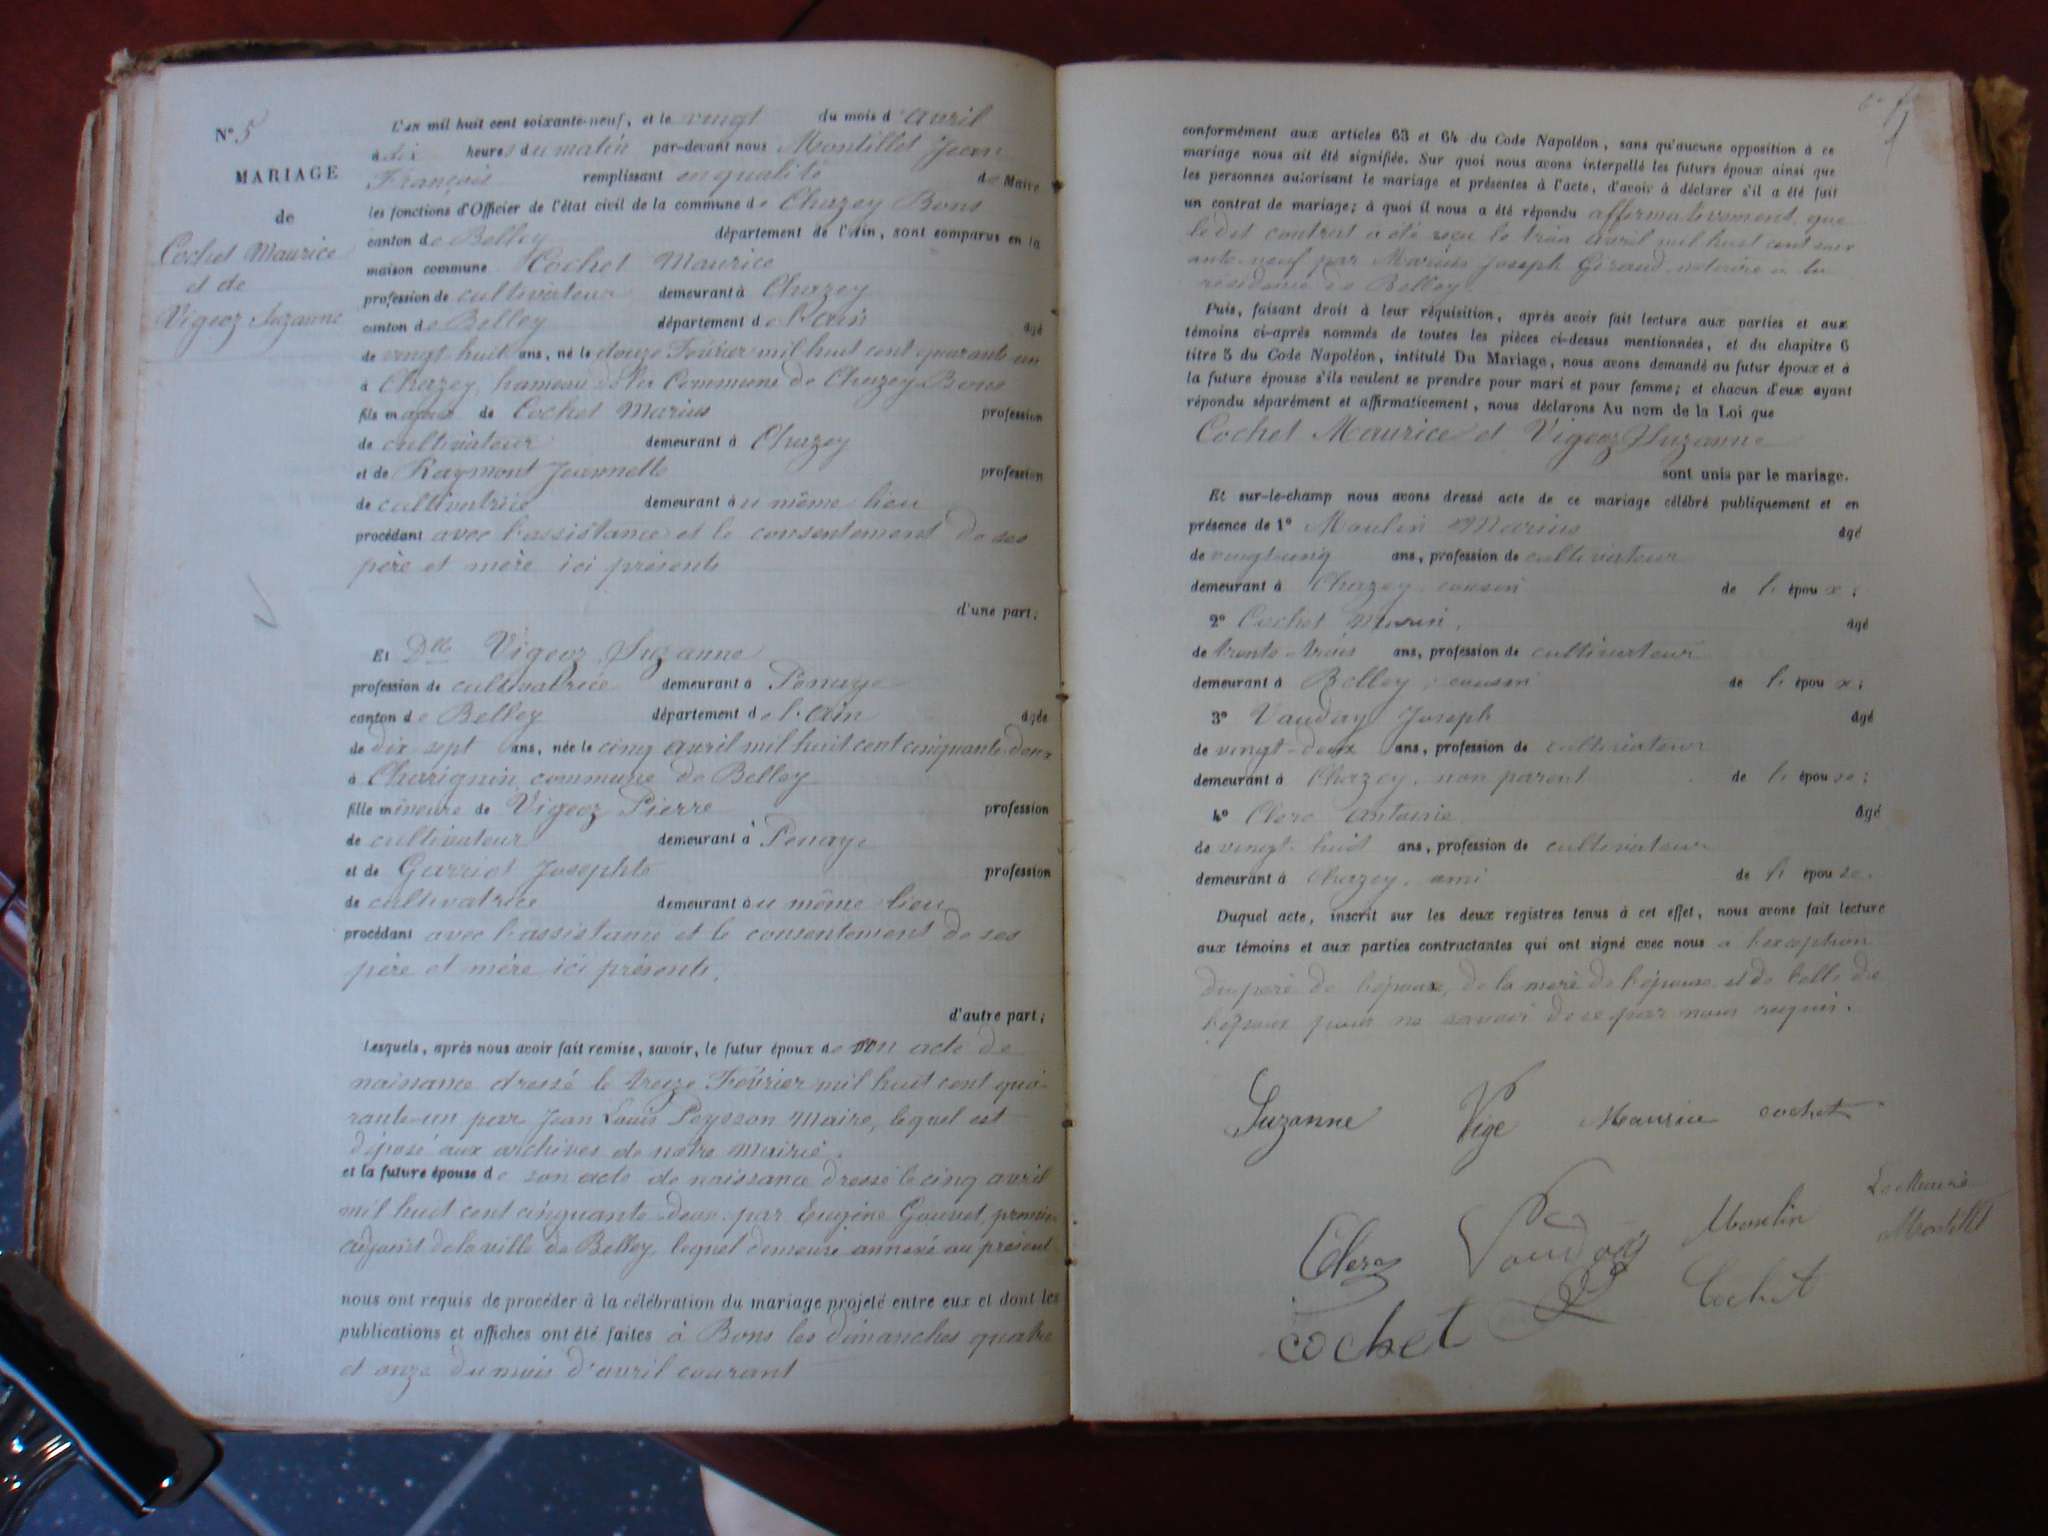 N° 5
MARIAGE
de
Cochet Maurice
et de
Vigeoz Suzanne
L'an mil huit cent soixante-neuf, et le vingt du mois d'avril
à dix heures du matin par-devant nous Montillet Jean
François remplissant en qualité de Maire
les fonctions d'Officier de l'état civil de la commune de Chazey Bons
canton de Belley département de l'Ain, sont comparus en la
maison commune Cochet Maurice
profession de cultivateur demeurant à Chazey
canton de Belley département de l'ain âgé
de vingt huit ans, né le douze Février mil huit cent quarante un
à Chazey, hameau de la Commune de Chazey-Bons
fils majeur de Cochet Marius profession
de cultivateur demeurant à Chazey
et de Raymont Jeannette profession
de cultivatrice demeurant au même lieu
procédant avec l'assistance et le consentement de ses
père et mère ici présents
d'une part;
Et Dlle Vigeoz Suzanne
profession de cultivatrice demeurant à Penaye
canton de Belley département de l'ain âgée
de dix sept ans, née le cinq avril mil huit cent cinquante-deux
à Charignin commune de Belley
fille mineure de Vigeoz Pierre profession
de cultivateur demeurant à Penaye
et de Josephte profession
de cultivatrice demeurant au même lieu
procédant avec l'assistance et le consentement de ses
père et mère ici présents,
d'autre part;
Lesquels, après nous avoir fait remise, savoir, le futur époux de son acte de
naissance dressé le treize Février mil huit cent qua-
rante-un par Jean Louis Peysson Maire, lequel est
déposé aux archives de notre Mairie.
et la future épouse de son acte de naissance dressé le cinq avril
mil huit cent cinquante-deux par Eugène premier
adjoint de la ville de Belley, lequel demeure annexé au présent
nous ont requis de procéder à la célébration du mariage projeté entre eux et dont les
publications et affiches ont été faites à Bons les dimanches quatre
et onze du mois d'avril courant
conformément aux articles 63 et 64 du Code Napoléon, sans qu'aucune opposition à ce
mariage nous ait été signifiée. Sur quoi nous avons interpellé les futurs époux ainsi que
les personnes autorisant le mariage et présentes à l'acte, d'avoir à déclarer s'il a été fait
un contrat de mariage; à quoi il nous a été répondu affirmativement que
ledit contrat a été reçu le trois avril mil huit cent soix
ante-neuf par Marius Joseph Giraud notaire à la
résidence de Belley
Puis, faisant droit à leur réquisition, après avoir fait lecture aux parties et aux
témoins ci-après nommés de toutes les pièces ci-dessus mentionnées, et du chapitre 6
titre 5 du Code Napoléon, intitulé Du Mariage, nous avons demandé au futur époux et à
la future épouse s'ils veulent se prendre pour mari et pour femme; et chacun d'eux ayant
répondu séparément et affirmativement, nous déclarons Au nom de la Loi que
Cochet Maurice et Vigeoz Suzanne
sont unis par le mariage.
Et sur-le-champ nous avons dressé acte de ce mariage célébré publiquement et en
présence de 1° Moulin Marius âgé
de vingt-cinq ans, profession de cultivateur
demeurant à Chazey, cousin de l'époux;
2° Cochet âgé
de trente-trois ans, profession de cultivateur
demeurant à Belley, cousin de l'époux;
3° Vauday Joseph âgé
de vingt-deux ans, profession de cultivateur
demeurant à Chazey, non parent de l'épouse;
4° Clerc Antoine âgé
de vingt-huit ans, profession de cultivateur
demeurant à Chazey, ami de l'épouse.
Duquel acte, inscrit sur les deux registres tenus à cet effet, nous avons fait lecture
aux témoins et aux parties contractantes qui ont signé avec nous à l'exception
du père de l'épouse, de la mère de l'épouse et de celle de
l'époux pour ne savoir de ce par nous requis.
Suzanne Vige Maurice cochet
Le Maire
Clerc Vauday Moulin Montillet
cochet Cochet